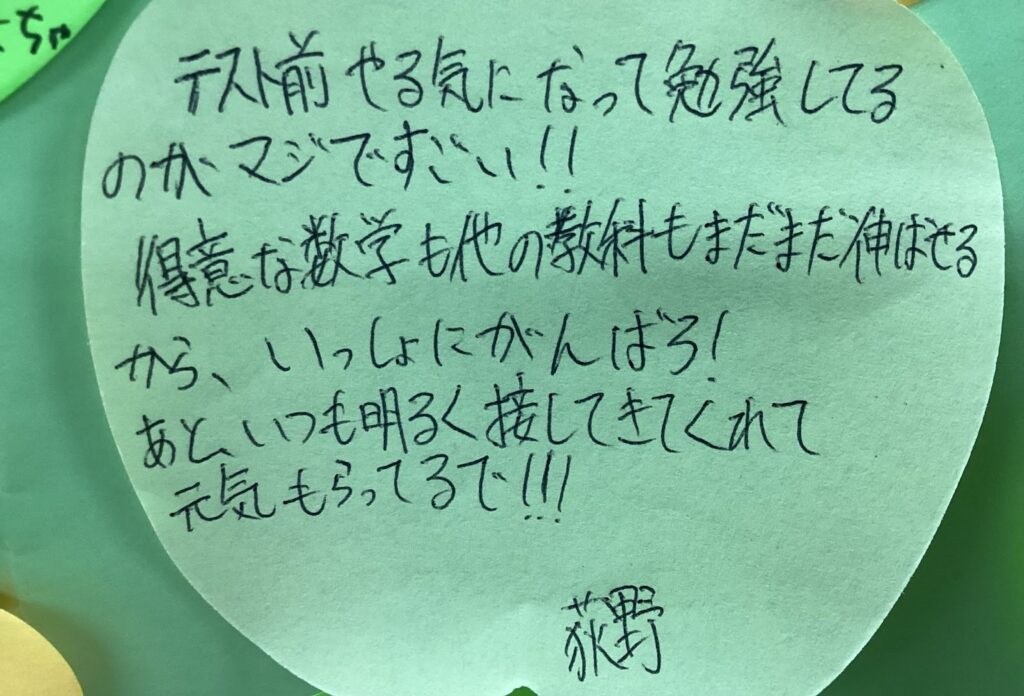 ちゃ
テスト前やる気になって勉強してる
のがマジですごい!!
得意な数学も他の教科もまだまだ伸ばせる
から、いっしょにがんばろ!
あと、いつも明るく接してきてくれて
元気もらってるで!!!
荻野